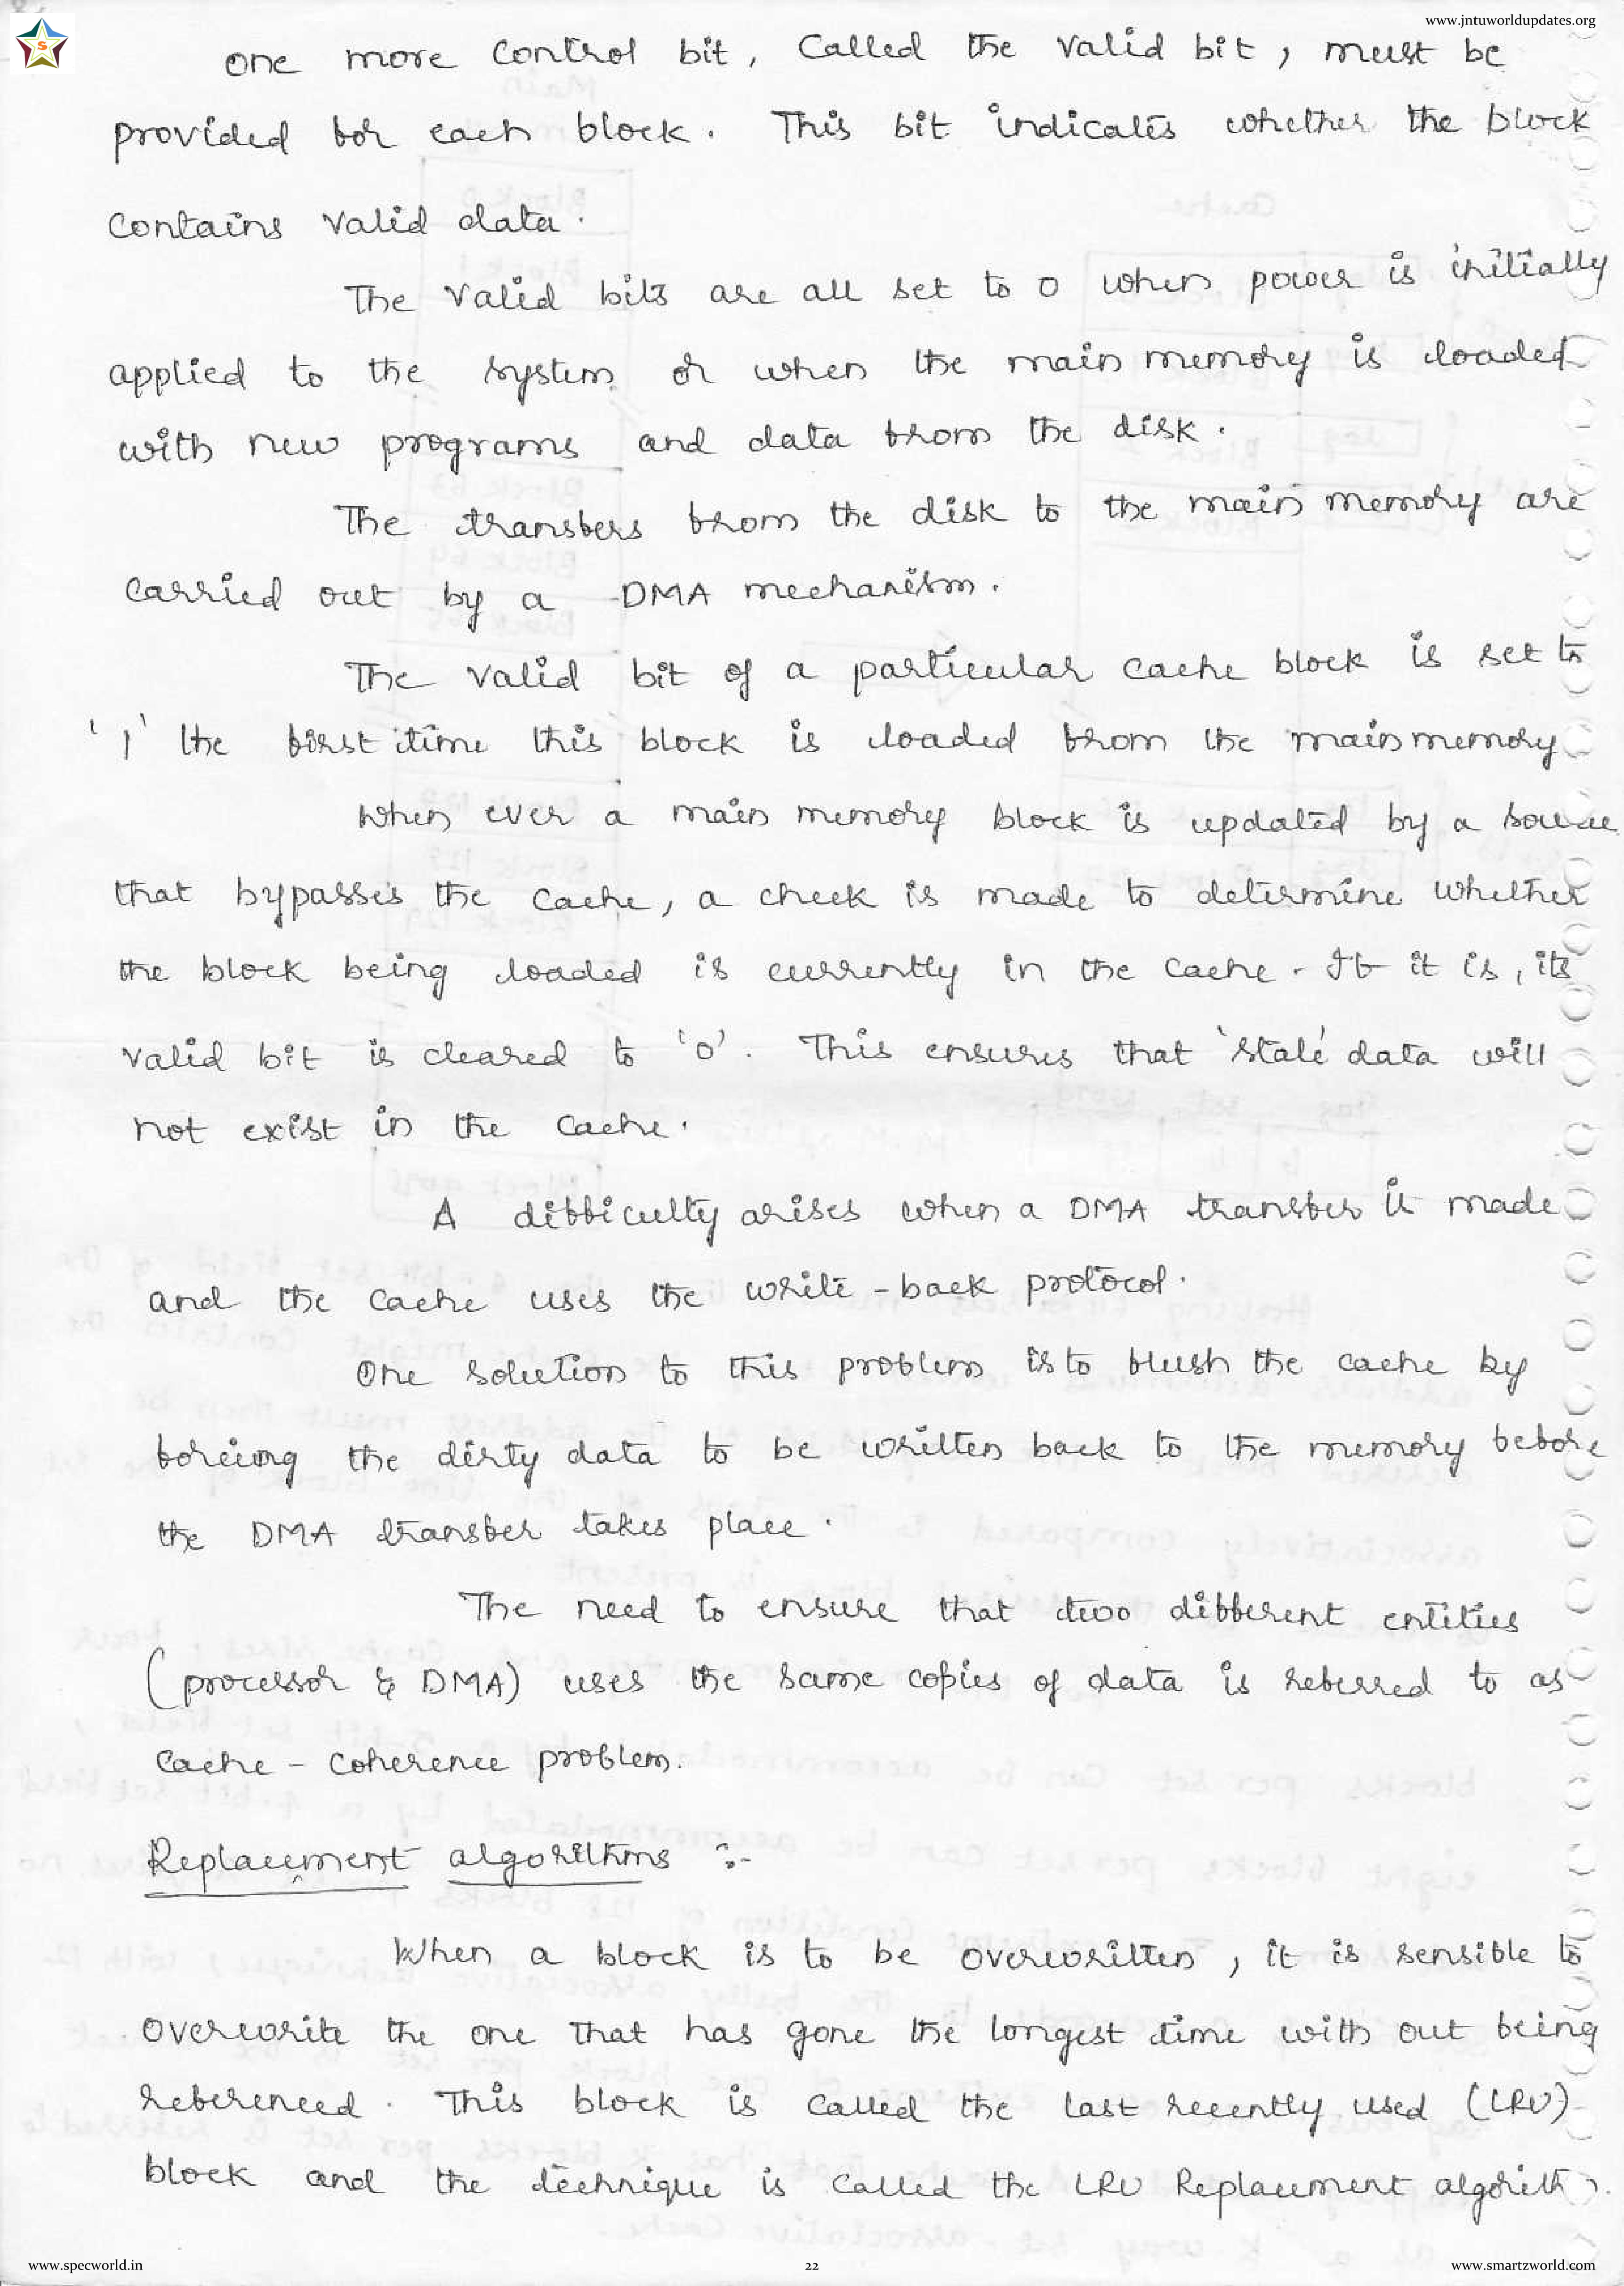 www.jntuworldupdates.org
S
One more Control bit, Called the Valid bit, must be
provided for each block. This bit indicates whether the block
Contains Valid data.
The Valid bits are all set to 0 when power is initially
applied to the system or when the main memory is loaded
with new programs and data from the disk.
The transfers from the disk to the main memory are
Carried out by a DMA mechanism.
The Valid bit of a particular cache block is set to
'1' the first time this block is loaded from the main memory
When ever a main memory block is updated by a source
that bypasses the cache, a check is made to determine whether
the block being loaded is currently in the cache. If it is, its
valid bit is cleared to '0'. This ensures that 'stale' data will
not exist in the cache.
A difficulty arises when a DMA transfer is made
and the cache uses the write-back protocol.
One solution to this problem is to flush the cache by
forcing the dirty data to be written back to the memory before
the DMA transfer takes place.
The need to ensure that two different entities
(processor & DMA) uses the same copies of data is referred to as
Cache - Coherence problem.
Replacement algorithms :-
When a block is to be overwritten, it is sensible to
overwrite the one that has gone the longest time with out being
referenced. This block is called the last recently used (LRU)
block and the technique is called the LRU Replacement algorithm.
www.specworld.in
22
www.smartzworld.com